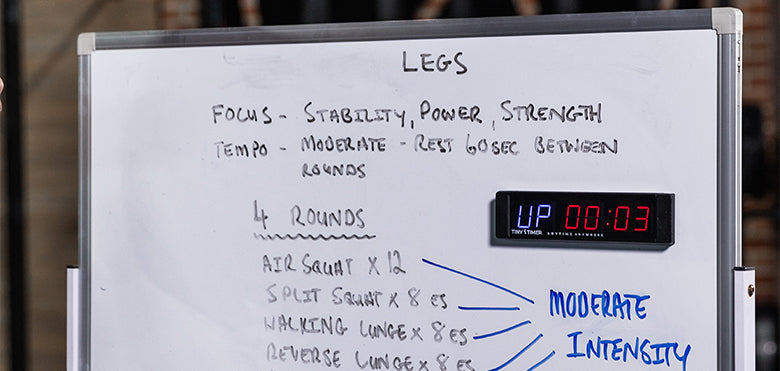 LEGS
FOCUS - STABILITY, POWER, STRENGTH
TEMPO - MODERATE - REST 60SEC BETWEEN
ROUNDS
4 ROUNDS
UP 00:03
TINY TIMER ANYTIME ANYWHERE
AIR SQUAT X 12
SPLIT SQUAT X 8 ES
WALKING LUNGE X 8 ES
REVERSE LUNGE X 8 ES
MODERATE
INTENSITY